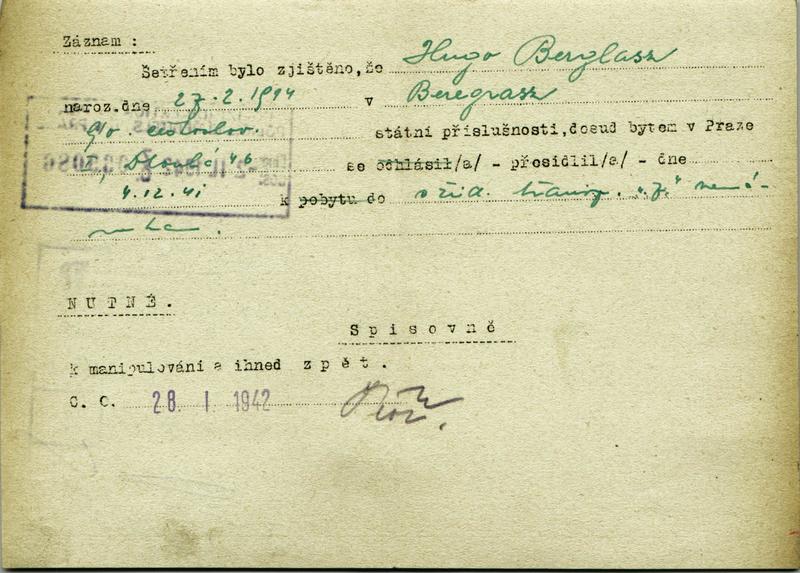 Záznam :
Šetřením bylo zjištěno, že Hugo Berglasz
naroz.dne 27.2.1914 v Beregrasz
státní příslušnosti,dosud bytem v Praze
Dlouhá 46 se odhlásil/a/ - přesídlil/a/ - dne
4.12.41 k pobytu do žid. transp. "J."
NUTNÉ.
Spisovně
k manipulování a ihned zpět.
C. O. 28. I. 1942